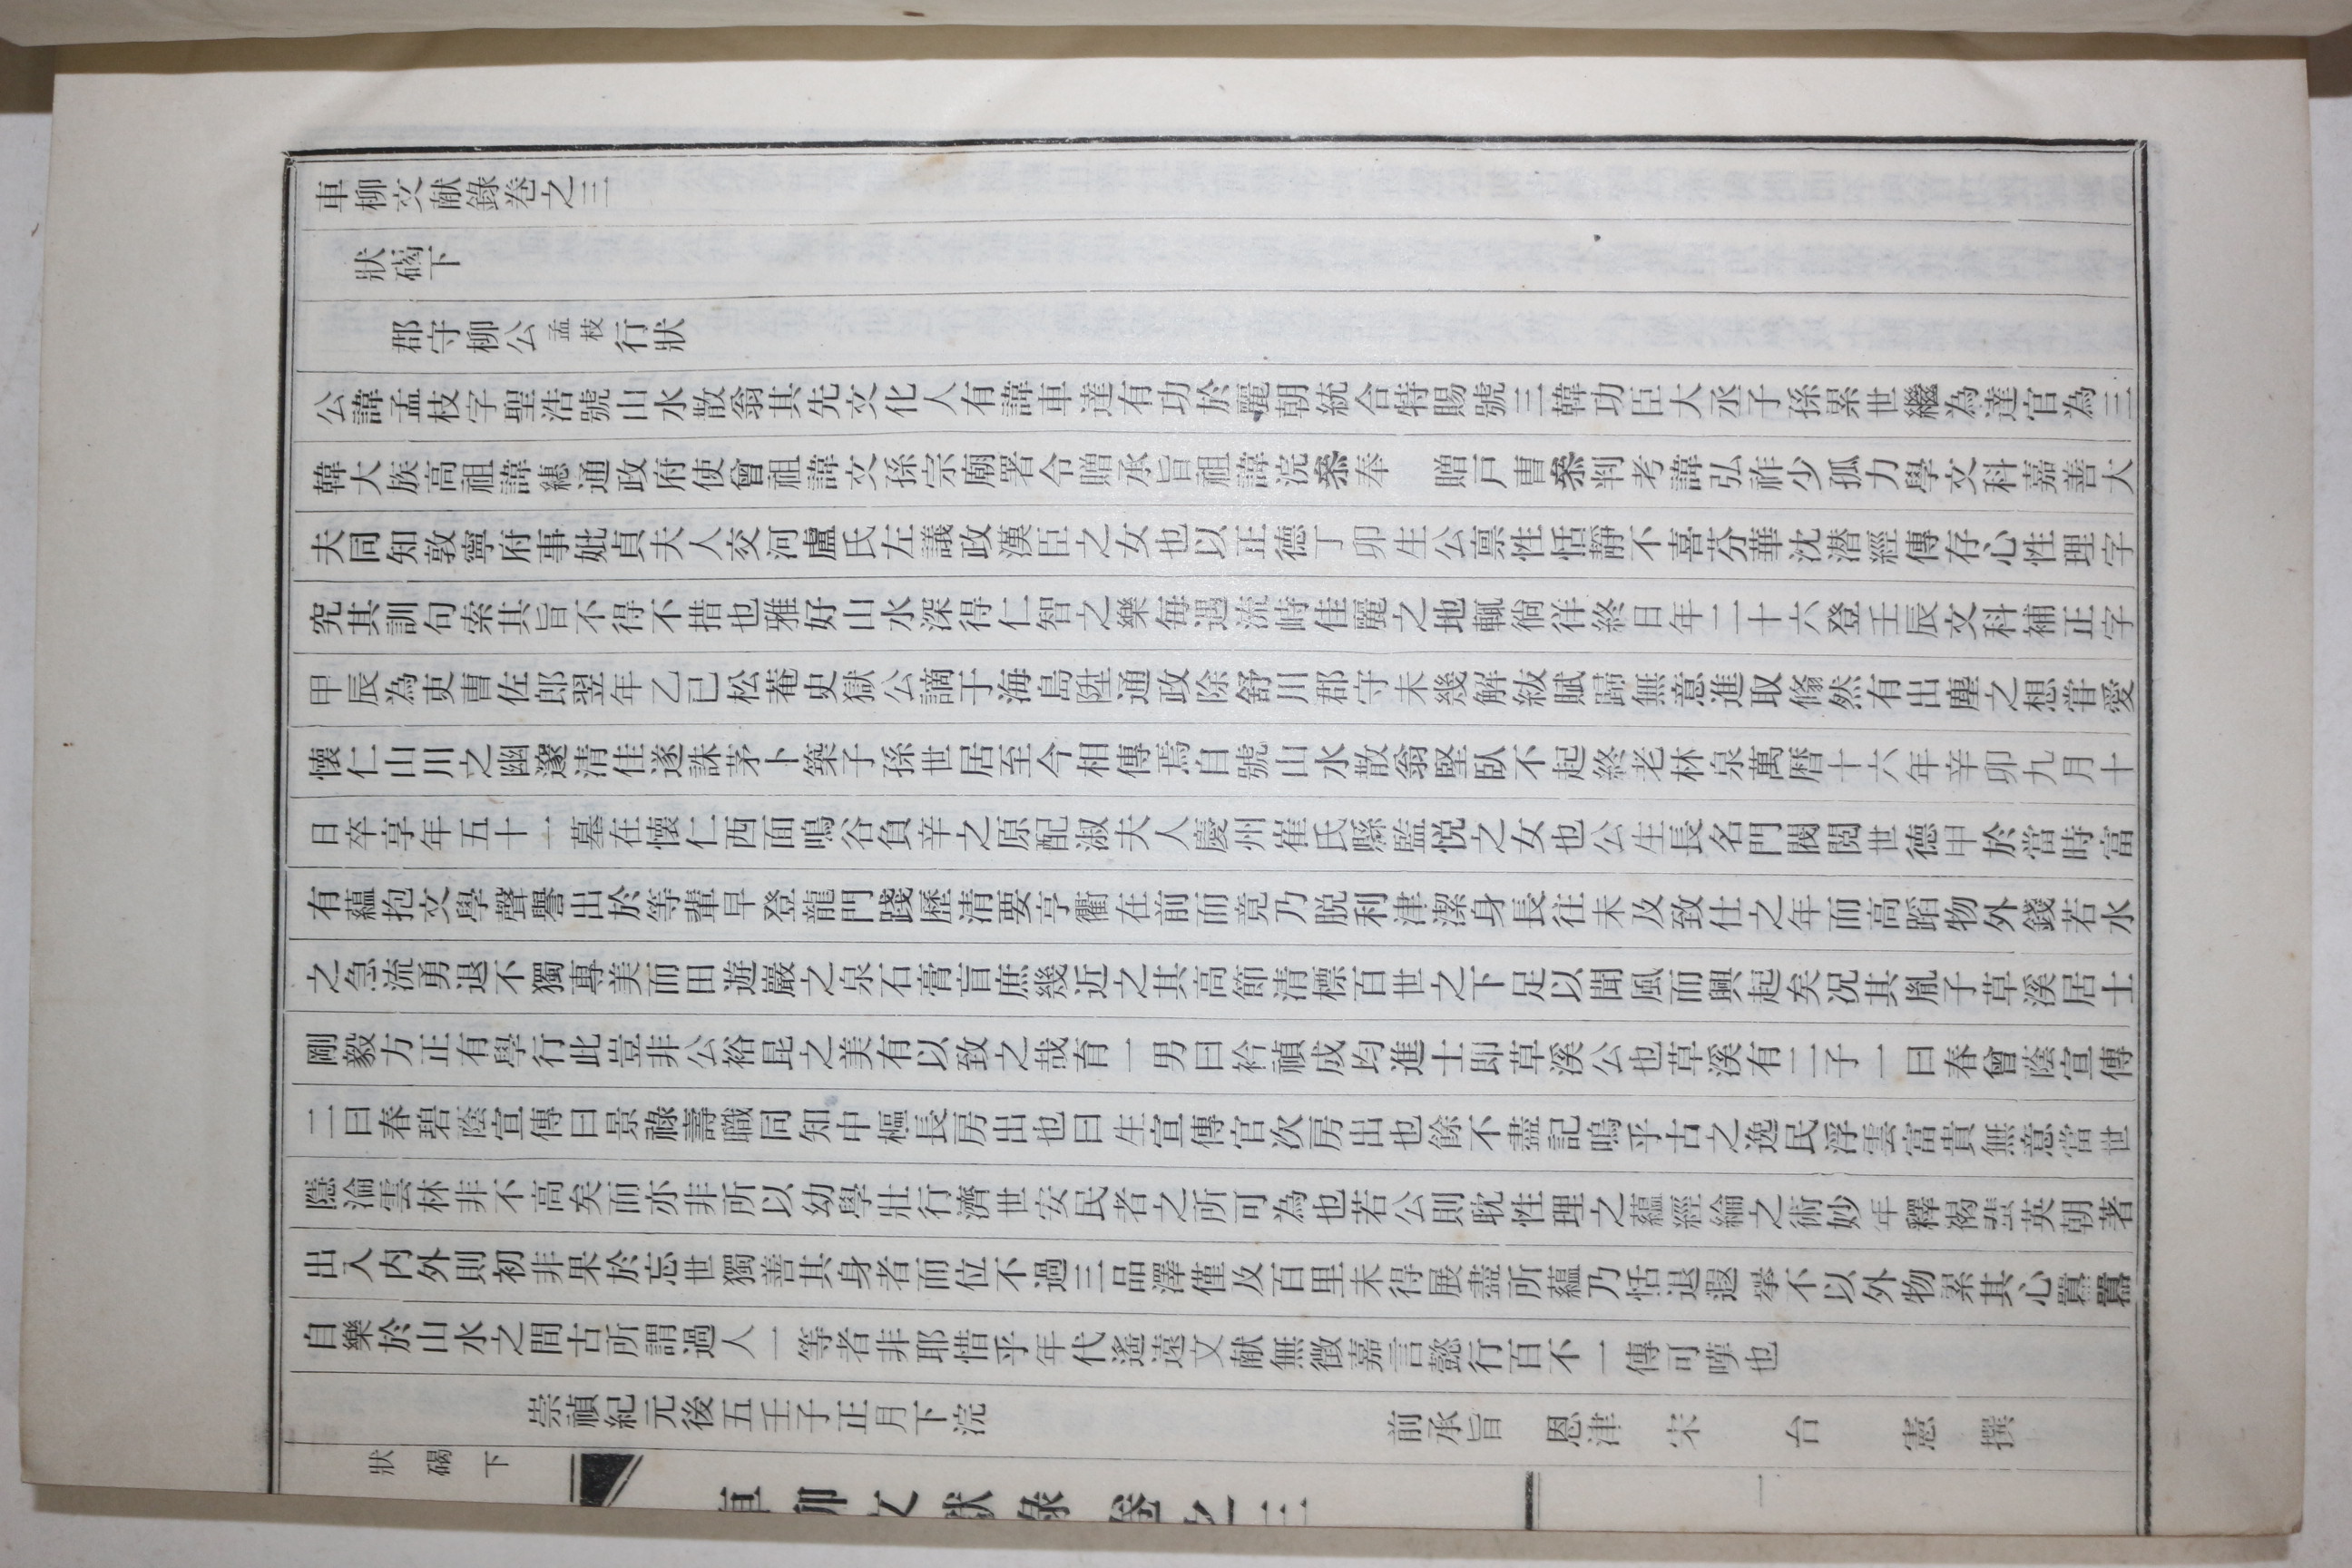 車柳文献錄卷之三
狀碣下
郡守柳公孟枝行狀
公諱孟枝字聖浩號山水散翁其先文化人有諱車達有功於麗朝統合特賜號三韓功臣大丞子孫累世繼為達官為三
韓大族高祖諱繐通政府使曾祖諱文孫宗廟署令贈承旨祖諱浣叅奉 贈戶曺叅判考諱弘祚少孤力學文科嘉善大
夫同知敦寧府事妣貞夫人交河盧氏左議政漢臣之女也以正德丁卯生公禀性恬靜不喜芬華沈潜經傳存心性理字
究其訓句索其旨不得不措也雅好山水深得仁智之樂每遇流峙佳麗之地輒徜徉終日年二十六登壬辰文科補正字
甲辰為吏曺佐郎翌年乙巳松菴史獄公謫于海島陞通政除舒川郡守未幾解紱賦歸無意進取翛然有出塵之想甞愛
懷仁山川之幽邃清佳遂誅茅卜築子孫世居至今相傳焉自號山水散翁堅臥不起終老林泉萬曆十六年辛卯九月十
日卒享年五十一墓在懷仁西面鳴谷負辛之原配淑夫人慶州崔氏縣監悦之女也公生長名門閥閲世德甲於當時富
有蘊抱文學聲譽出於等輩早登龍門踐歷清要亨衢在前而竟乃脱利津潔身長往未及致仕之年而高蹈物外錢若水
之急流勇退不獨專美而田遊巖之泉石膏盲庶幾近之其高節清標百世之下足以聞風而興起矣况其胤子草溪居士
剛毅方正有學行此豈非公裕昆之美有以致之哉育一男曰衿禎成均進士即草溪公也草溪有二子一曰春曾蔭宣傳
二曰春碧蔭宣傳曰景祿壽職同知中樞長房出也曰生宣傳官次房出也餘不盡記嗚乎古之逸民浮雲富貴無意當世
隱淪雲林非不高矣而亦非所以幼學壯行濟世安民者之所可為也若公則耽性理之蘊經綸之術妙年釋褐蜚英朝著
出入内外則初非果於忘世獨善其身者而位不過三品澤僅及百里未得展盡所蘊乃恬退遐擧不以外物累其心囂囂
自樂於山水之間古所謂過人一等者非耶惜乎年代遙遠文献無徴嘉言懿行百不一傳可嘆也
崇禎紀元後五壬子正月下浣 前承旨 恩津 宋 台 憲 撰
狀碣下 車柳文獻錄 卷之三 一